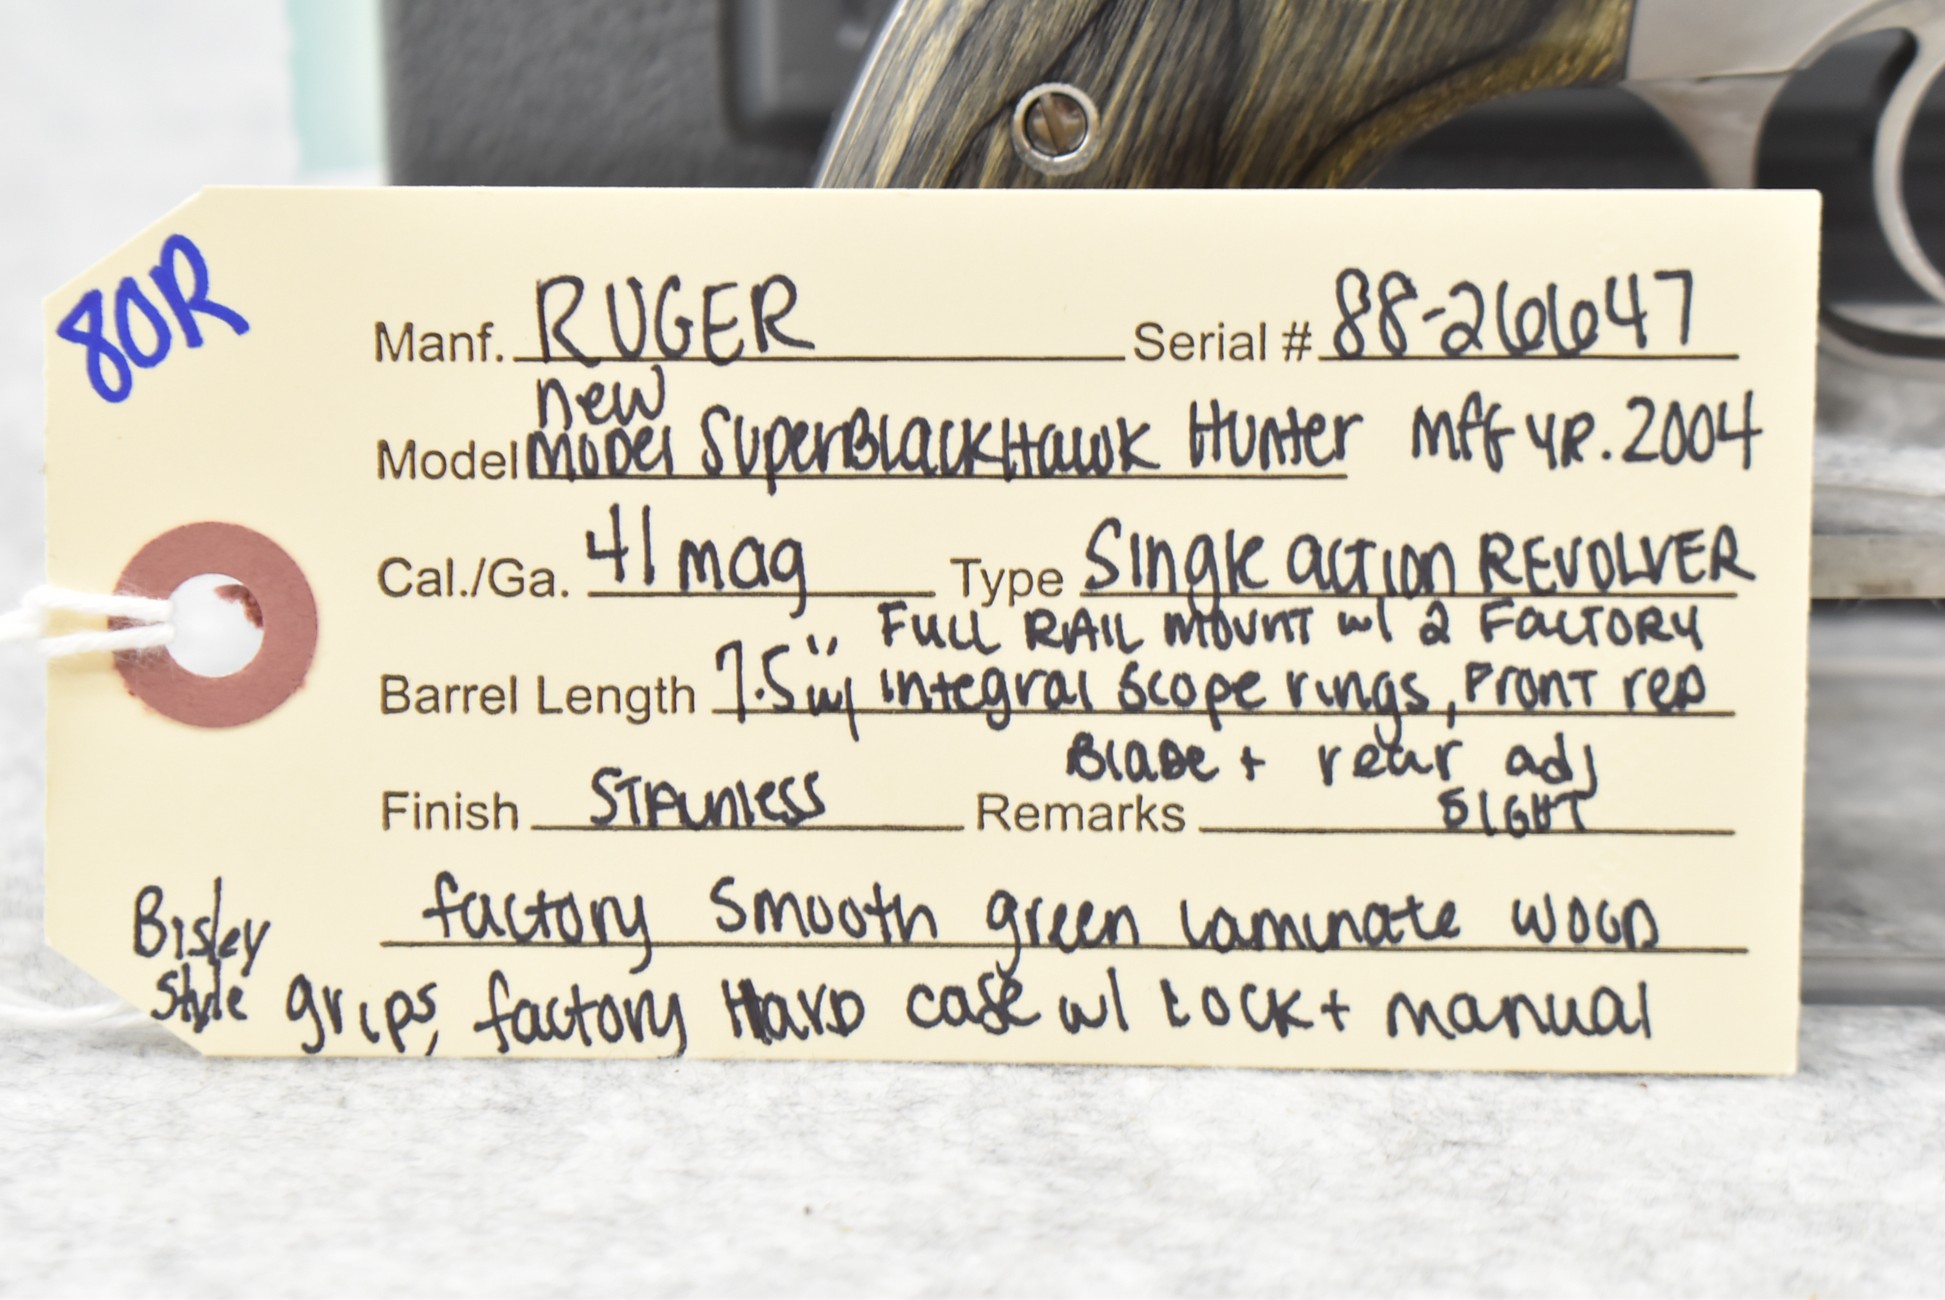 80R
Manf. RUGER Serial # 88-26647
new
Model Model SuperBlackHawk Hunter Mfg YR. 2004
Cal./Ga. 41 mag Type Single action REVOLVER
FULL RAIL MOUNT w/ 2 FACTORY
Barrel Length 7.5" w/ integral scope rings, Front red
Blade + rear adj
Finish STAINLESS Remarks SIGHT
factory smooth green laminate wood
Bisley
style grips, factory Hard case w/ lock + manual